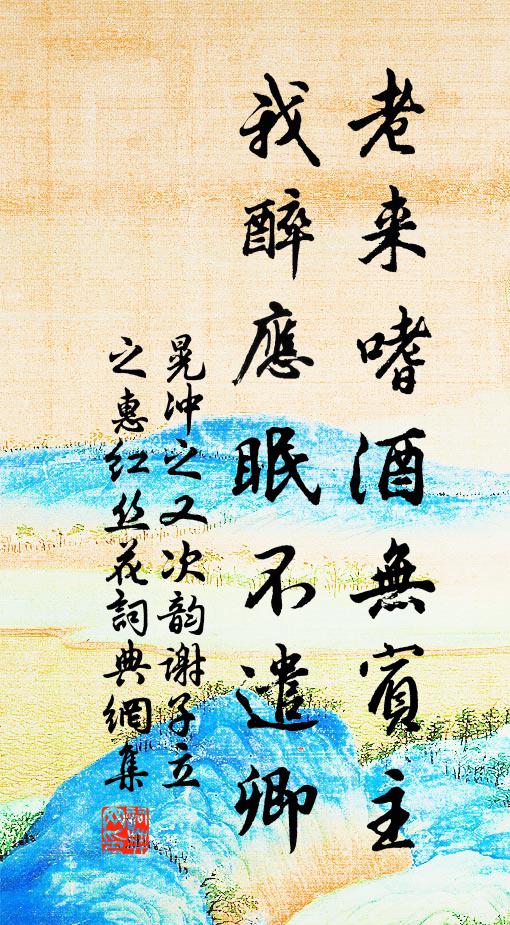 老来嗜酒無賓主
我醉應眠不遣卿
晁冲之又次韵謝子立
之惠红丝花詞典網集